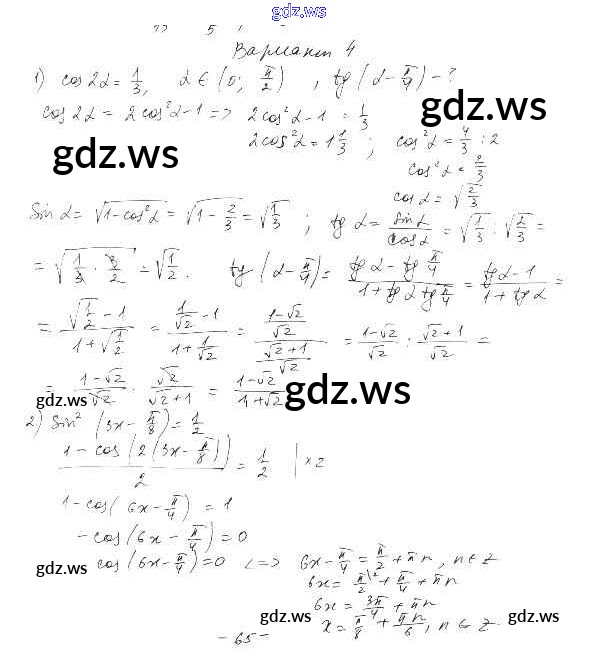 gdz.ws
Вариант 4
1) cos 2α = 1/3, α ∈ (0; π/2), tg(α - π/4) - ?
cos 2α = 2cos²α - 1 => 2cos²α - 1 = 1/3
gdz.ws
gdz.ws
2cos²α = 1 1/3; cos²α = 4/3 : 2
cos²α = 2/3
cos α = √(2/3)
sin α = √(1-cos²α) = √(1 - 2/3) = √(1/3); tg α = sin α/cos α = √(1/3) : √(2/3) =
= √(1/3 · 3/2) = √(1/2). tg(α - π/4) = (tg α - tg π/4)/(1 + tg α tg π/4) = (tg α - 1)/(1 + tg α) =
= (√(1/2) - 1)/(1 + √(1/2)) = (1/√2 - 1)/(1 + 1/√2) = ((1-√2)/√2)/((√2+1)/√2) = (1-√2)/√2 : (√2+1)/√2 =
gdz.ws
gdz.ws
= (1-√2)/√2 · √2/(√2+1) = (1-√2)/(1+√2)
2) sin²(3x - π/8) = 1/2
(1 - cos(2(3x - π/8)))/2 = 1/2 | ×2
1 - cos(6x - π/4) = 1
- cos(6x - π/4) = 0
cos(6x - π/4) = 0 <=> 6x - π/4 = π/2 + πn, n ∈ z
gdz.ws
6x = π/2 + π/4 + πn
6x = 3π/4 + πn
gdz.ws
gdz.ws
x = π/8 + πn/6, n ∈ z.
- 65 -